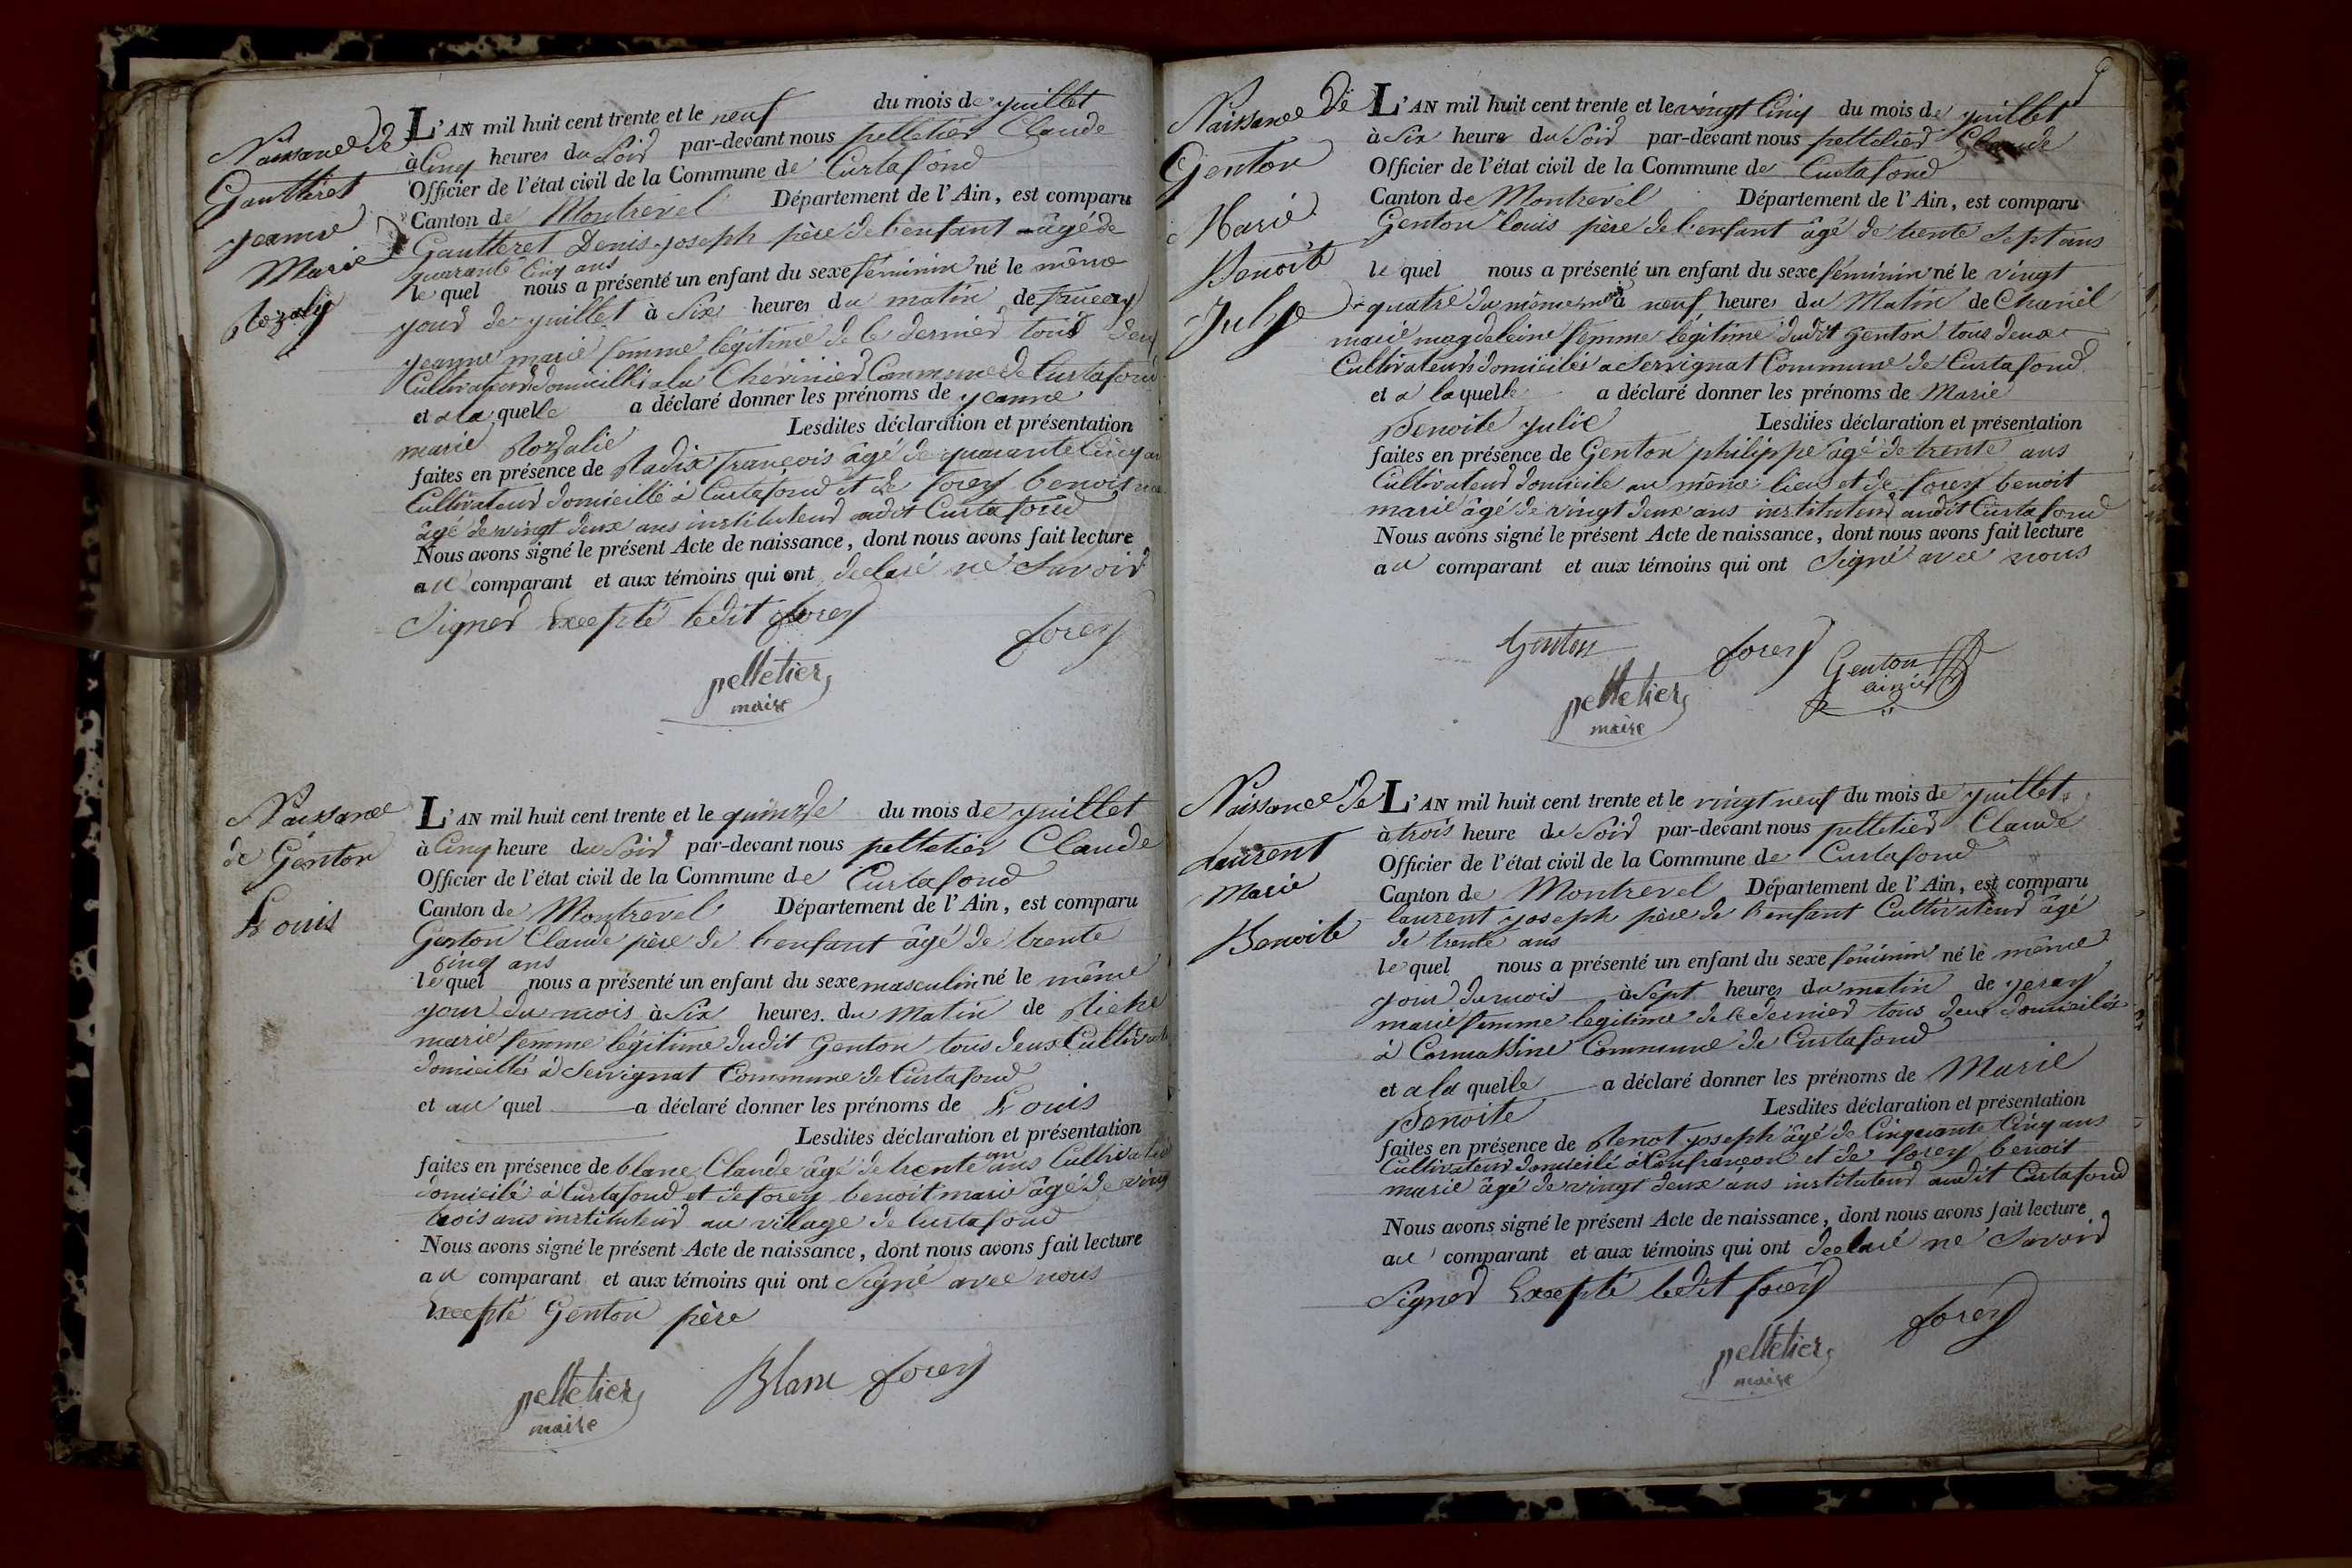 Naissance de
Gautteret
jeanne
Marie
Rozalie
L'AN mil huit cent trente et le neuf du mois de juillet
à Cinq heures du Soir par-devant nous pelletier Claude
Officier de l'état civil de la Commune de Curtafond
Canton de Montrevel Département de l'Ain, est comparu
Gautteret Denis joseph père de l'enfant âgé de
quarante Cinq ans
le quel nous a présenté un enfant du sexe féminin né le même
jour de juillet à Six heures du matin de
jeanne marie femme légitime de le dernier tous deux
Cultivateurs domicilliés a la Commune de Curtafond
et a la quelle a déclaré donner les prénoms de jeanne
marie Rozalie Lesdites déclaration et présentation
faites en présence de Radix françois âgé de quarante Cinq an
Cultivateur domicillié à Curtafond et de forey benoit ma
âgé de vingt deux ans instituteur audit Curtafond
Nous avons signé le présent Acte de naissance, dont nous avons fait lecture
au comparant et aux témoins qui ont declaré ne Savoir
Signer Excepté ledit forey
forey
pelletier
maire
Naissance
de Genton
Louis
L'AN mil huit cent trente et le quinze du mois de juillet
à Cinq heure du Soir par-devant nous pelletier Claude
Officier de l'état civil de la Commune de Curtafond
Canton de Montrevel Département de l'Ain, est comparu
Genton Claude père de l'enfant âgé de trente
Cinq ans
le quel nous a présenté un enfant du sexe masculin né le même
jour du mois à Six heures du Matin de
marie femme légitime dudit Genton tous deux Cultivate
domicilliés à Servignat Commune de Curtafond
et au quel a déclaré donner les prénoms de Louis
Lesdites déclaration et présentation
faites en présence de blanc Claude âgé de trente un ans Cultivateur
domicilié à Curtafond et de forey benoit marie âgé de vingt
trois ans instituteur au village de Curtafond
Nous avons signé le présent Acte de naissance, dont nous avons fait lecture
au comparant et aux témoins qui ont Signé avec nous
Excepté Genton père
pelletier
maire
Blanc forey
Naissance de
Genton
Marie
Benoite
Julye
L'AN mil huit cent trente et le vingt Cinq du mois de juillet
à Six heure du Soir par-devant nous pelletier Claude
Officier de l'état civil de la Commune de Curtafond
Canton de Montrevel Département de l'Ain, est comparu
Genton louis père de l'enfant âgé de trente Sept ans
le quel nous a présenté un enfant du sexe féminin né le vingt
quatre du même mois à neuf heures du Matin de Charvel
marie magdeleine femme légitime dudit genton tous deux
Cultivateurs domiciliés a Servignat Commune de Curtafond
et a laquelle a déclaré donner les prénoms de Marie
Benoite julie Lesdites déclaration et présentation
faites en présence de Genton philippe âgé de trente ans
Cultivateur domicile au même lieu et de forey benoit
marie âgé de vingt deux ans instituteur audit Curtafond
Nous avons signé le présent Acte de naissance, dont nous avons fait lecture
au comparant et aux témoins qui ont Signé avec nous
Genton forey Genton
ainée
pelletier
maire
Naissance de
Laurent
Marie
Benoite
L'AN mil huit cent trente et le vingt neuf du mois de juillet
à trois heure du Soir par-devant nous pelletier Claude
Officier de l'état civil de la Commune de Curtafond
Canton de Montrevel Département de l'Ain, est comparu
laurent joseph père de l'enfant Cultivateur âgé
de trente ans
le quel nous a présenté un enfant du sexe féminin né le même
jour du mois à Sept heures du matin de
marie femme legitime de le dernier tous deux domiciliés
à Commune de Curtafond
et a la quelle a déclaré donner les prénoms de Marie
Benoite Lesdites déclaration et présentation
faites en présence de joseph âgé de Cinquante Cinq ans
Cultivateur domicilié à Confrançon et de forey benoit
marie âgé de vingt deux ans instituteur audit Curtafond
Nous avons signé le présent Acte de naissance, dont nous avons fait lecture
au comparant et aux témoins qui ont declaré ne Savoir
Signer Excepté ledit forey
forey
pelletier
maire